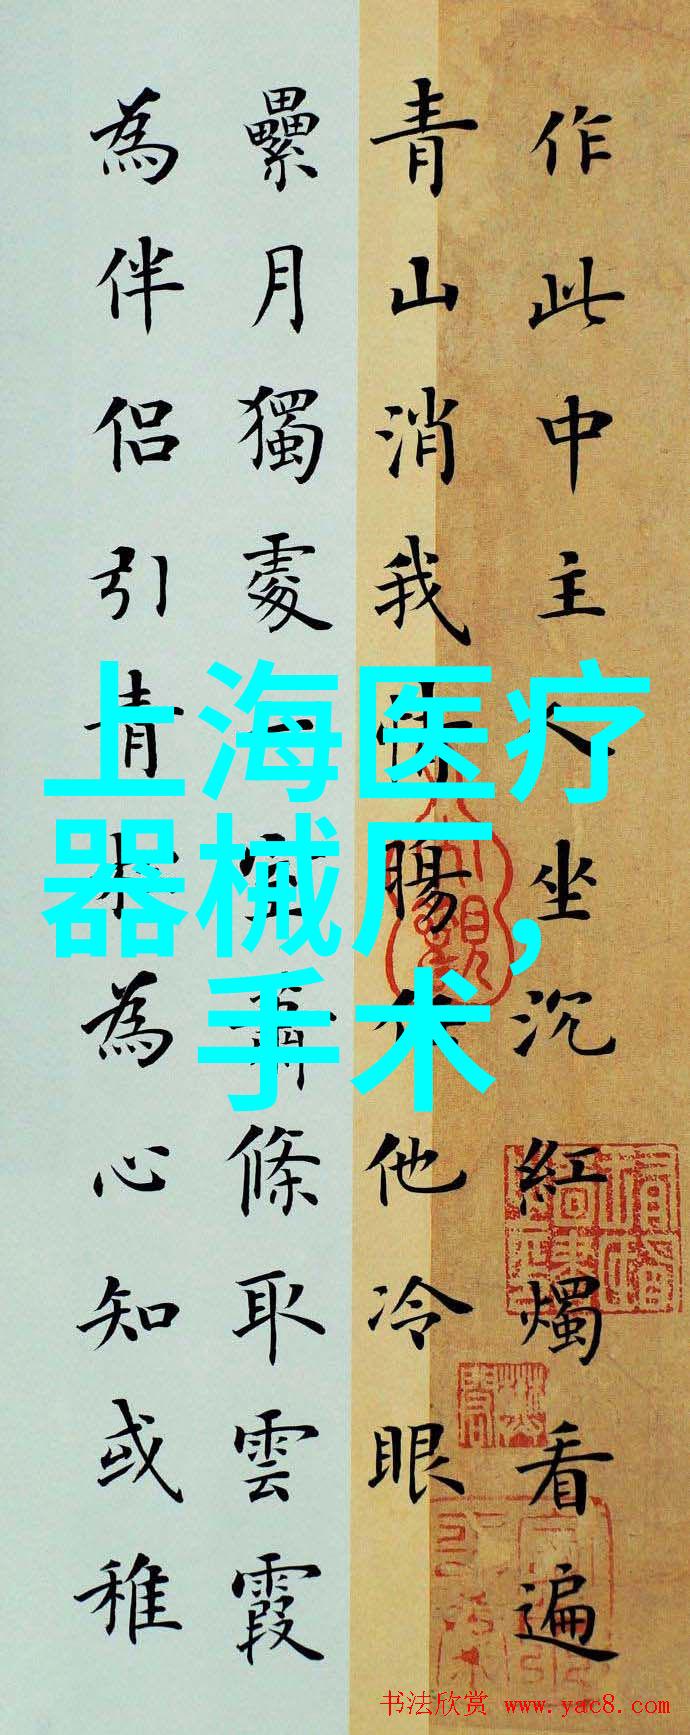 作此中主人坐沉紅燭看遍
青山消我腸他冷眼
纍月獨處一室蕭條取雲霞
為伴侶引青松為心知或稚
上海医疗
器械厂,
手术
书法欣赏 www.yac8.com